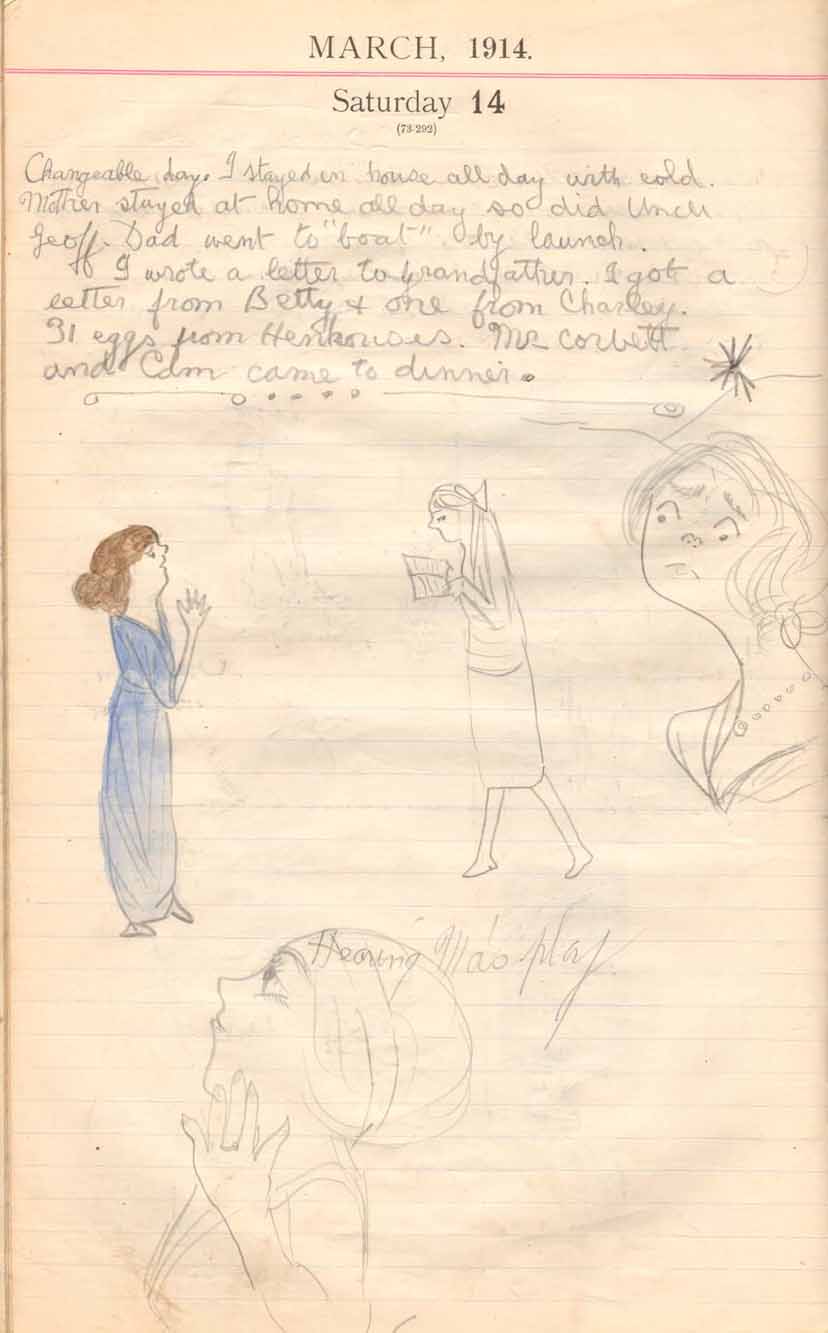 MARCH, 1914.
Saturday 14
(73-292)
Changeable day. I stayed in house all day with cold.
Mother stayed at home all day so did Uncle
Geoff. Dad went to "boat" by launch.
I wrote a letter to Grandfather. I got a
letter from Betty & one from Charley.
31 eggs from Henhouses. Mr Corbett
and Cdm came to dinner.
Hearing Ma's play